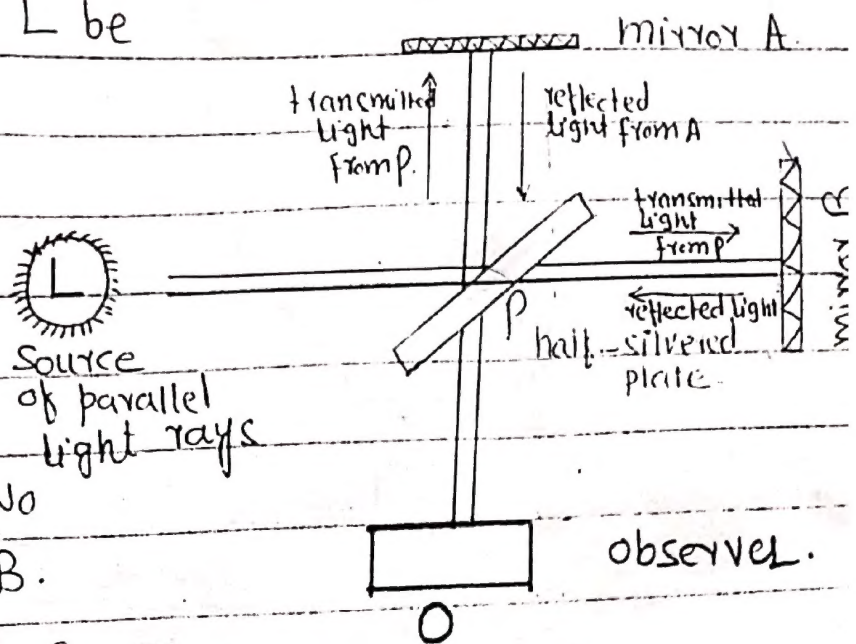 L be
mirror A.
transmitted
light
from P.
reflected
light from A
transmitted
light
from P
mirror B
L
P
reflected light
half-silvered
plate.
Source
of parallel
light rays
No
B.
observer.
O